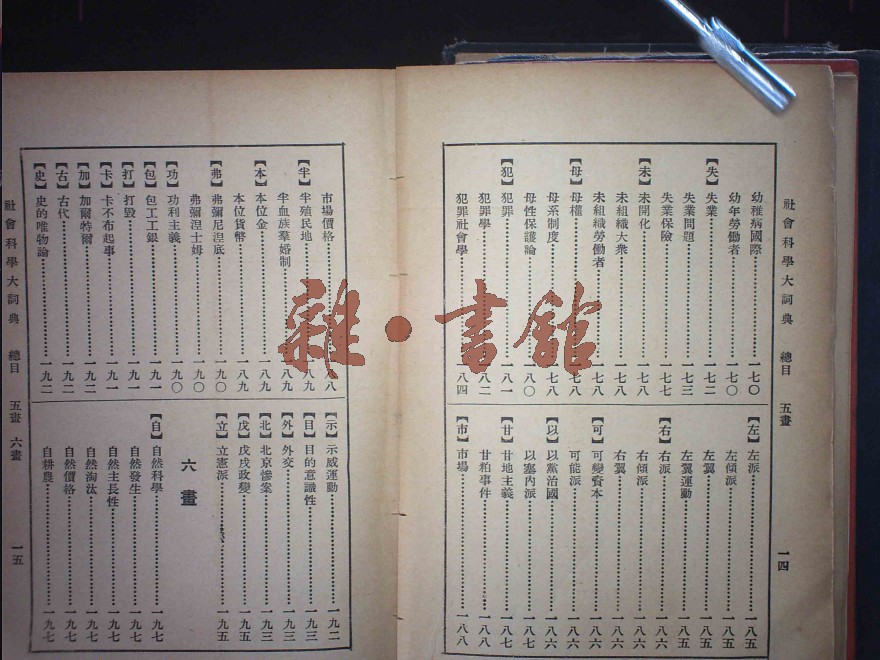 社會科學大詞典 總目 五畫 一四
幼稚病國際 一七〇
幼年勞働者 一七〇
【失】失業 一七二
失業問題 一七三
失業保險 一七七
【未】未開化 一七八
未組織大衆 一七八
未組織勞働者 一七八
【母】母權 一七八
母系制度 一七八
母性保護論 一八〇
【犯】犯罪 一八一
犯罪學 一八二
犯罪社會學 一八四
【左】左派 一八五
左傾派 一八五
左翼 一八五
左翼運動 一八五
【右】右派 一八六
右傾派 一八六
右翼 一八六
【可】可變資本 一八六
可能派 一八六
【以】以黨治國 一八六
以塞內派 一八七
【甘】甘地主義 一八七
甘粕事件 一八八
【市】市場 一八八
市場價格 八八
【半】半殖民地 八九
半血族羣婚制 八九
【本】本位金 一八九
本位貨幣 一八九
【弗】弗彌尼涅底 一九〇
弗彌涅士姆 一九〇
【功】功利主義 一九〇
【包】包工工銀 一九一
【打】打毀 一九一
【卡】卡不布起事 一九一
【加】加爾特爾 一九二
【古】古代 一九二
【史】史的唯物論 一九二
【示】示威運動 一九二
【目】目的意識性 一九三
【外】外交 一九三
【北】北京慘案 一九三
【戊】戊戌政變 一九五
【立】立憲派 一九五
六畫
【自】自然科學 一九七
自然發生 一九七
自然主長性 一九七
自然淘汰 一九七
自然價格 一九七
自耕農 一九七
社會科學大詞典 總目 五畫 六畫 一五
雜·書館